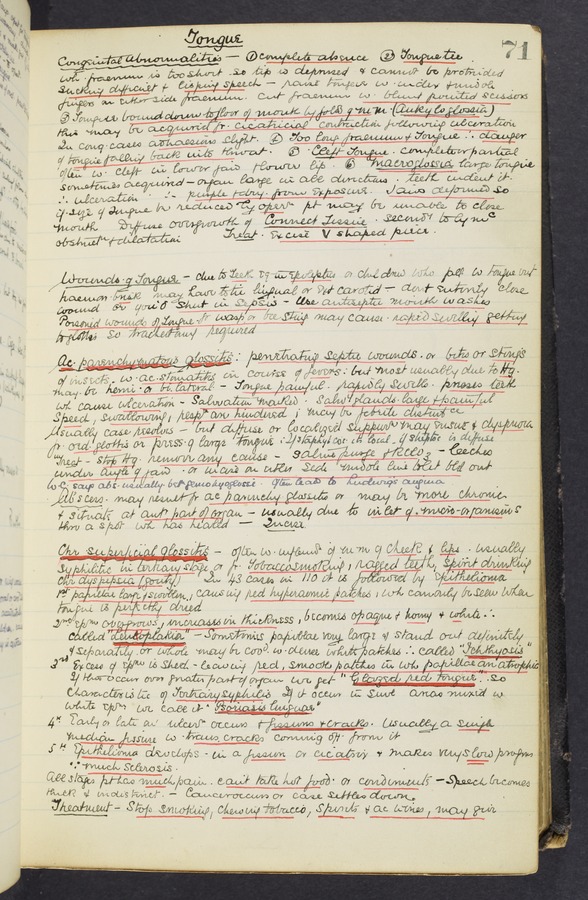 71
Tongue
Congenital Abnormalities — ① complete absence ② Tongue tie
wh. fraenum is too short so tip is depressed & cannot be protruded
Sucking difficult & lisping speech — raise tongue w. index & middle
fingers on either side fraenum. cut fraenum w blunt pointed scissors
③ Tongue bound down to floor of mouth by folds of m.m (Ankyloglossia)
this may be acquired fr. cicatricial contraction following ulceration
In cong. cases adhesions slight. ④ Too long fraenum & Tongue ∴ danger
of tongue falling back into throat. ⑤ Cleft Tongue. complete or partial
often w. cleft in lower jaw & lower lip. ⑥ Macroglossia large tongue
sometimes acquired — organ large in all directions. teeth indent it
∴ ulceration ∴ purple & dry from exposure. Jaws deformed so
if size of tongue be reduced by opern pt may be unable to close
mouth. Diffuse overgrowth of Connect Tissue. second to lymc
obstruct & dilatation. Treat. Excise V shaped piece.
Wounds of Tongue — due to teeth eg in epileptics or children who fall w tongue out
haemor. brisk may have to tie lingual or Ext carotid — don't entirely close
wound or you'd shut in Sepsis — Use antiseptic mouth washes
Poisoned wounds of Tongue fr wasp or bee sting may cause rapid swelling
so tracheotomy required
Ac. parenchymatous glossitis: penetrating septic wounds. or bites or stings
of insects. w. ac. stomatitis in course of fevers: but most usually due to Hg.
may be hemi: or bilateral — Tongue painful. rapidly swells. presses teeth
wh cause ulceration — Salivation marked. Salivy glands large & painful
Speed, swallowing, respn are hindered; may be febrile disturbce
Usually case resolves — but diffuse or localized suppurn may ensue & dyspnoea
fr. oed. glottis or press. of large tongue.
Treat — Stop Hg. remove any cause — Saline purge & KClO3 — Leeches
under angle of jaw. or incise on either side middle line
Abscess. may result fr ac parenchy glossitis or may be more chronic
& situate at ant part of organ — usually due to inlet of micro-organisms
thro a spot wh has healed — Incise
Chr superficial glossitis — often w. of m.m of cheek & lips. usually
Syphilitic in tertiary stage or fr. Tobacco smoking, ragged teeth, Spirit drinking
chr dyspepsia (gouty) In 43 cases in 110 it is followed by Epithelioma
1st papillae large & swollen, causing red hyperaemic patches; wh can only be seen when
tongue is perfectly dried
2nd overgrows, increases in thickness, becomes opaque & horny & white ∴
called "Leukoplakia" — Sometimes papillae very large & stand out definitely
& separately or whole may be covd w. dense white patches ∴ called "Ichthyosis"
3rd Excess of epm is shed — leaving red, smooth patches in wh papillae are atrophic
If this occur over greater part of organ we get "Glazed red tongue": so
characteristic of Tertiary syphilis If it occurs in small areas mixed w
white epm we call it "Psoriasis linguae"
4th Early or late an ulcern occurs & fissures & cracks. Usually a single
median fissure w. trans. cracks coming off from it
5th Epithelioma develops — in a fissure or cicatrix & makes very slow progress
∵ much sclerosis.
All stages pt has much pain. can't take hot food or condiments — Speech becomes
thick & indistinct. — Cancer occurs or case settles down.
Treatment — Stop smoking, chewing tobacco, Spirits & ac wines, may give